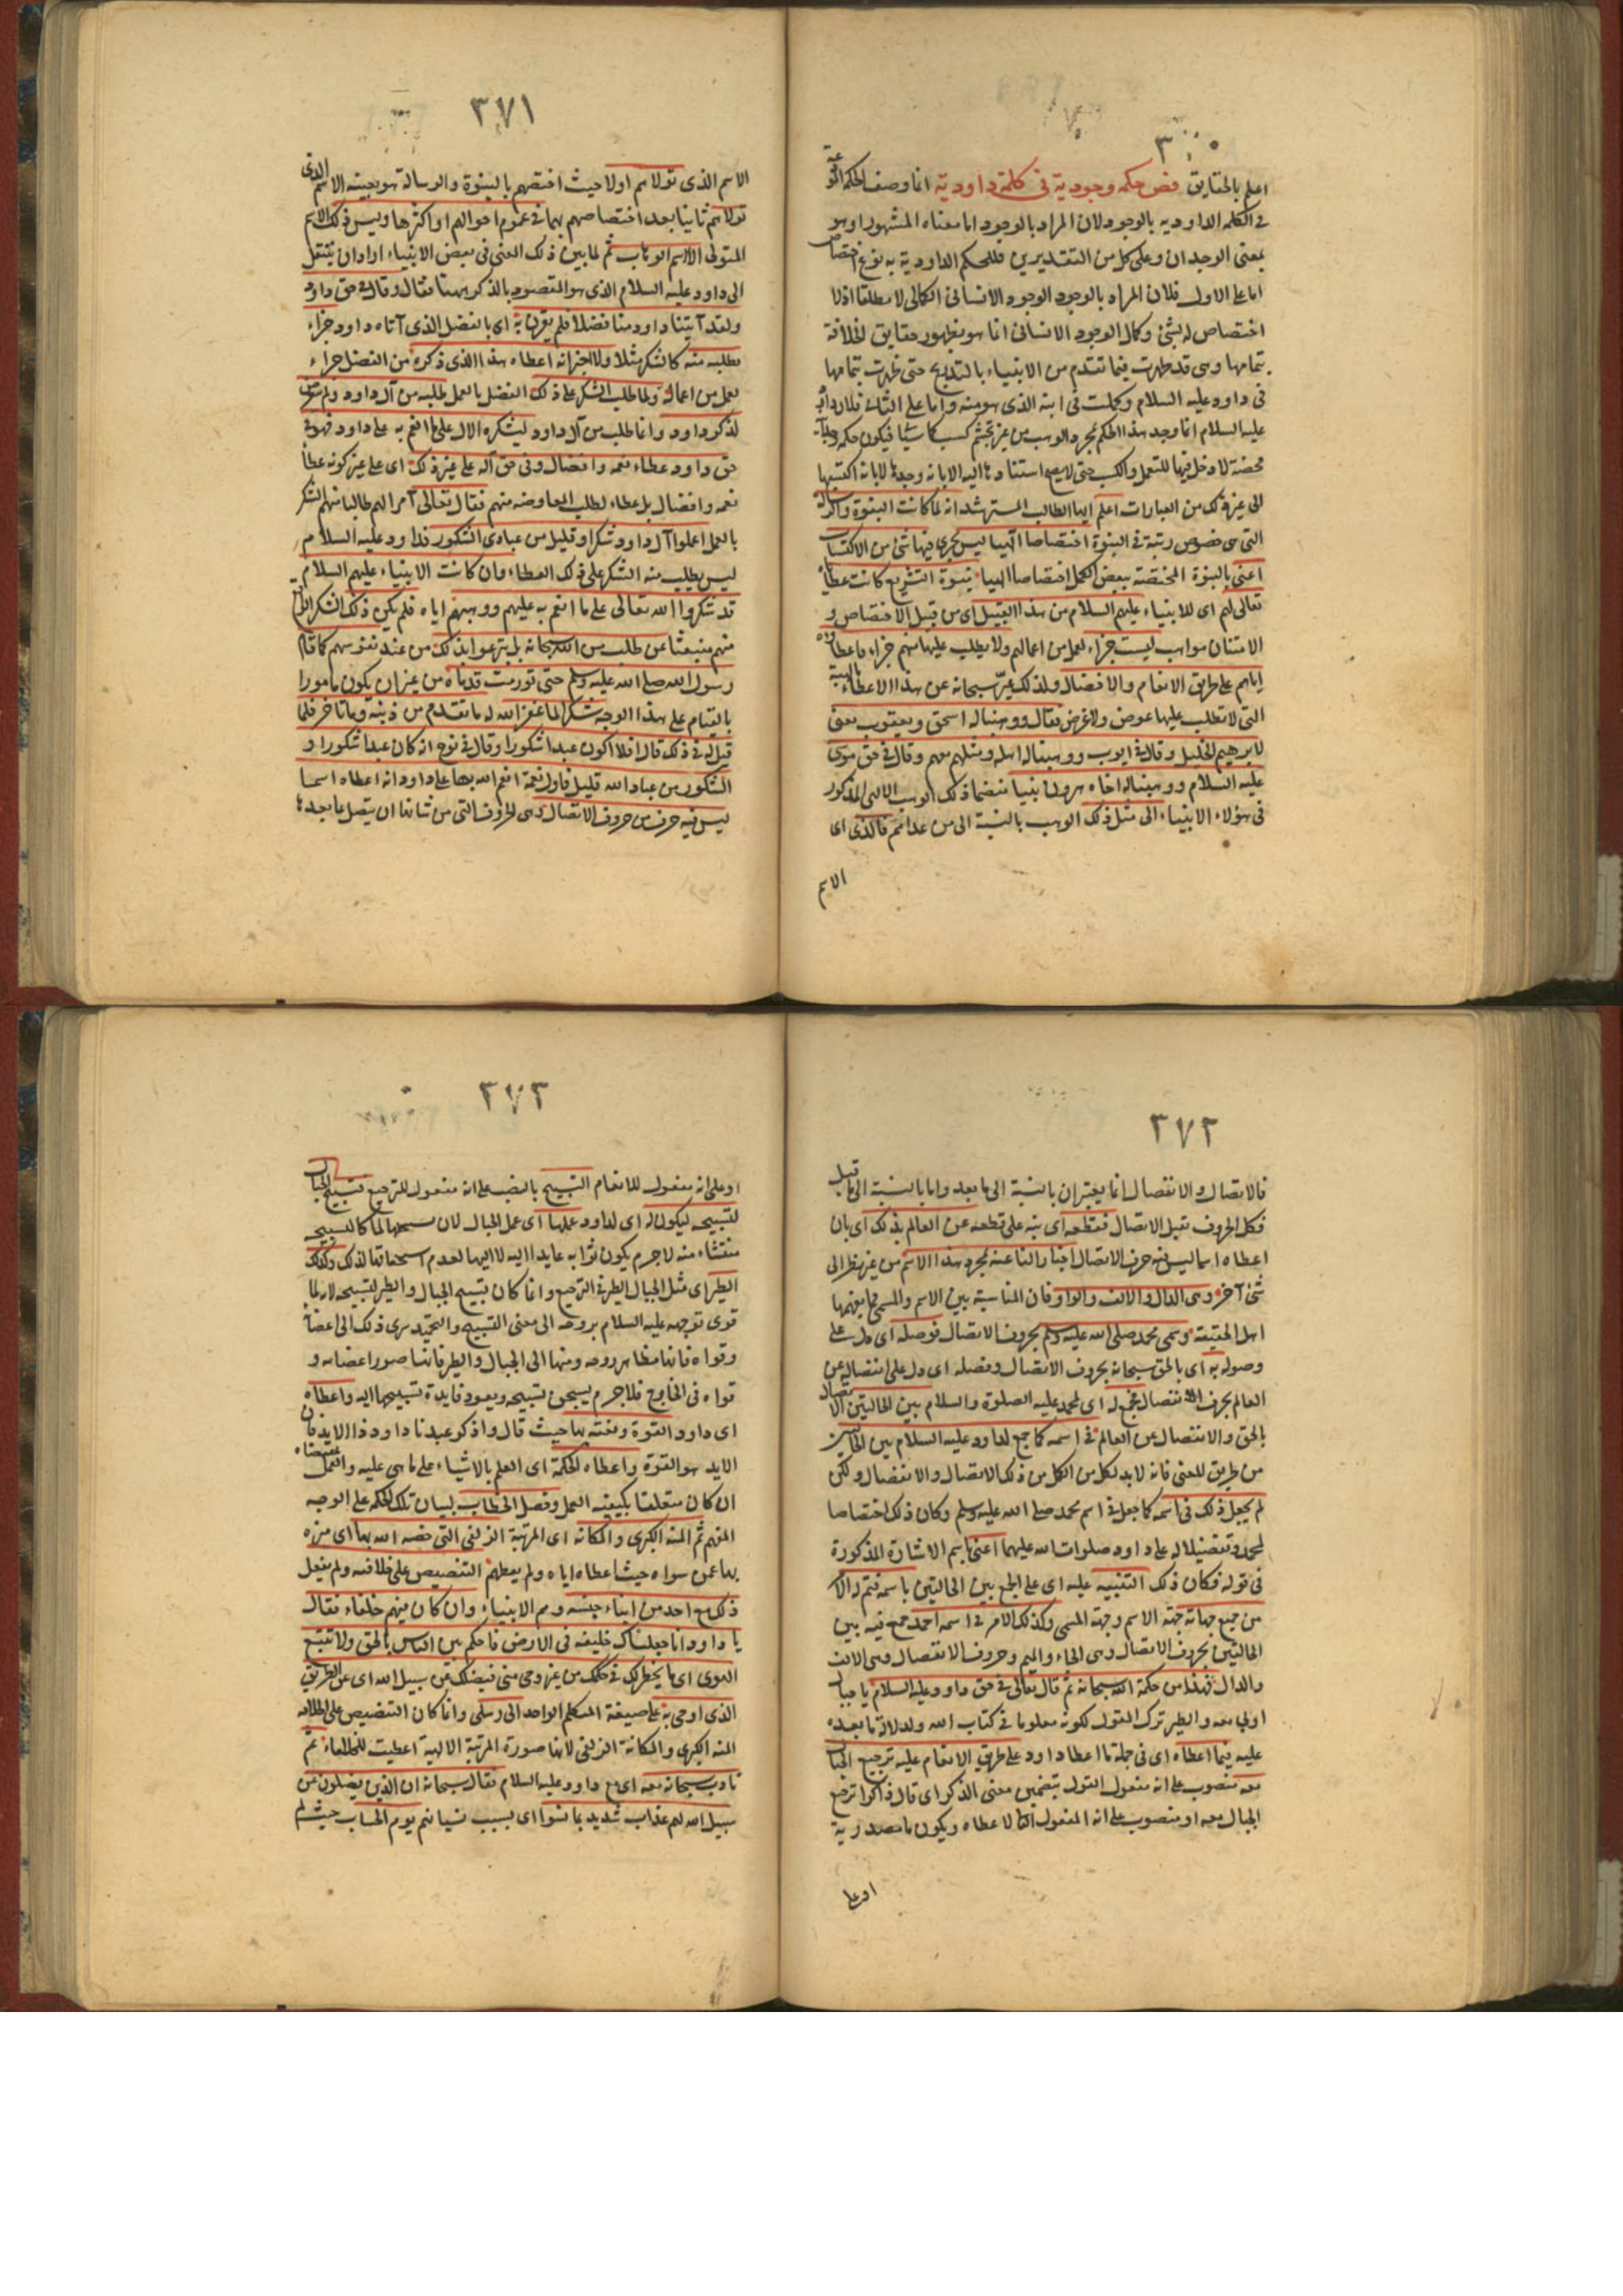 ٣٧٠
اعلم بالحقايق فص حكمة وجودية في كلمة داودية انما وصف الحكمة
في الكلمة الداودية بالوجود لان المراد بالوجود اما معناه المشهور او هو
بمعنى الوجدان وعلى كل من التقديرين فللحكم الداودية به نوع اختصاص
اما على الاول فلان المراد بالوجود الوجود الانساني الكمالي لا مطلقا اذ لا
اختصاص له بشئ وكمال الوجود الانساني انما هو بظهور حقايق الخلافة
بتمامها وهي قد ظهرت فيما تقدم من الانبياء بالتدريج حتى ظهرت بتمامها
في داود عليه السلام وكملت في ابنه الذي هو منه واما على الثاني فلان داود
عليه السلام انما وجد هذا الحكم بمجرد الوهب من غير تجشم كسب فيكون حكمه
محضة لا دخل فيها للتعمل والكسب حتى لا يصح استنادها اليه الا بانه وجدها لا بانه اكتسبها
الى غير ذلك من العبارات اعلم ايها الطالب المسترشد انه لما كانت النبوة والرسالة
التي هي خصوص رتبة في النبوة اختصاصا الهيا ليس يجري فيها شئ من الاكتساب
اعني بالنبوة المختصة ببعض الكمل اختصاصا الهيا نبوة التشريع كانت عطاياه
تعالى لهم اى للانبياء عليهم السلام من هذا القبيل اى من قبيل الاختصاص و
الامتنان مواهب ليست جزاء لعمل من اعمالهم ولا يطلب عليها منهم جزاء فاعطاؤه
اياهم على طريق الانعام والافضال ولذلك عبر سبحانه عن هذا الاعطاء بالهبة
التي لا تطلب عليها عوض ولا غرض فقال ووهبنا له اسحق ويعقوب يعني
لابرهيم الخليل وقال في ايوب ووهبنا له اهله ومثلهم معهم وقال في حق موسى
عليه السلام ووهبنا له اخاه هرون نبيا منضما ذلك الوهب الالهى المذكور
في هؤلاء الانبياء الى مثل ذلك الوهب بالنسبة الى من عداهم فالذى اى
الاسم
٣٧١
الاسم الذى تولاهم اولا حيث اختصهم بالنبوة والرسالة هو بعينه الاسم الذى
تولاهم ثانيا بعد اختصاصهم بهما في عموم احوالهم او اكثرها وليس ذلك الاسم
المتولى الا اسم الوهاب ثم لما بين ذلك المعنى في بعض الانبياء اراد ان ينتقل
الى داود عليه السلام الذى هو المقصود بالذكر ههنا فقال وقال في حق داود
ولقد آتينا داود منا فضلا فلم يقرن به اى بالفضل الذى آتاه داود جزاء
يطلبه منه كالشكر مثلا ولا اخبر انه اعطاه هذا الذى ذكره من الفضل جزاء
لعمل من اعماله ولما طلب الشكر على ذلك الفضل بالعمل طلبه من آل داود ولم يتعرض
لذكر داود وانما طلب من آل داود ليشكره الآل على ما انعم به على داود فهو في
حق داود عطاء نعمة وافضال وفي حق آله على غير ذلك اى على غير كونه عطاء
نعمة وافضال بل عطاء لطلب المعاوضة منهم فقال تعالى آمرا لهم طالبا منهم الشكر
بالعمل اعملوا آل داود شكرا وقليل من عبادى الشكور فداود عليه السلام
ليس يطلب منه الشكر على ذلك العطاء وان كانت الانبياء عليهم السلام
قد شكروا الله تعالى على ما انعم به عليهم ووهبهم اياه فلم يكن ذلك الشكر الواقع
منهم منبعثا عن طلب من الله سبحانه بل تبرعوا بذلك من عند نفوسهم كما قام
رسول الله صلى الله عليه وسلم حتى تورمت قدماه من غير ان يكون مامورا
بالقيام على هذا الوجه شكرا لما غفر الله له ما تقدم من ذنبه وما تاخر فلما
قيل له في ذلك قال افلا اكون عبدا شكورا وقال في نوح انه كان عبدا شكورا و
الشكور من عباد الله قليل فاول نعمة انعم الله بها على داود انه اعطاه اسما
ليس فيه حرف من حروف الاتصال وهى الحروف التي من شانها ان يتصل بما بعدها
٣٧٢
فالاتصال والانفصال انما يعتبران بالنسبة الى ما بعد واما بالنسبة الى ما قبل
فكل الحروف تقبل الاتصال فقطعه اى نبه على قطعه عن العالم بذلك اى بان
اعطاه اسما ليس فيه حرف الاتصال اخبارا لنا عنه بمجرد هذا الاسم من غير نظر الى
شئ آخر وهى الدال والالف والواو فان المناسبة بين الاسم والمسمى مما يفهمها
اهل الحقيقة وسمى محمد صلى الله عليه وسلم بحروف الاتصال فوصله اى دل على
وصوله به اى بالحق سبحانه بحروف الاتصال وفصله اى دل على انفصاله عن
العالم بحرف الانفصال فجمع له اى لمحمد عليه الصلوة والسلام بين الحالتين الاتصال
بالحق والانفصال عن العالم في اسمه كما جمع لداود عليه السلام بين الحالتين
من طريق المعنى فانه لا بد لكل من الكمل من ذلك الاتصال والانفصال ولكن
لم يجعل ذلك في اسمه كما جعل في اسم محمد صلى الله عليه وسلم وكان ذلك اختصاصا
لمحمد وتفضيلا له على داود صلوات الله عليهما اعني باسم الاشارة المذكورة
في قوله فكان ذلك التنبيه عليه اى على الجمع بين الحالتين باسمه فتم له الامر
من جميع جهاته جهة الاسم وجهة المسمى وكذلك الامر في اسمه احمد جمع فيه بين
الحالتين بحروف الاتصال وهى الحاء والميم وحروف الانفصال وهى الالف
والدال فهذا من حكمة الله سبحانه ثم قال تعالى في حق داود عليه السلام يا جبال
اوبي معه والطير ترك المقول لكونه معلوما في كتاب الله ولدلالة ما بعده
عليه فيما اعطاه اى في جملة ما اعطا داود على طريق الانعام عليه ترجيع الجبال
معه منصوب على انه مفعول القول بتضمين معنى الذكر اى قال ذاكرا ترجيع
الجبال معه او منصوب على انه المفعول الثاني لاعطاه ويكون ما مصدرية
او على
٣٧٣
او على انه مفعول للانعام التسبيح بالنصب على انه مفعول للترجيع فتسبح الجبال
لتسبيحه ليكون له اى لداود عملها اى عمل الجبال لان تسبيحها لما كان لتسبيحه
منتشاء منه لا جرم يكون ثوابه عايدا اليه لا اليها لعدم استحقاقها لذلك وكذلك
الطير اى مثل الجبال الطير في الترجيع وانما كان تسبيح الجبال والطير لتسبيحه لانه لما
قوى توجهه عليه السلام بروحه الى معنى التسبيح والتحميد سرى ذلك الى اعضائه
وقواه فانها مظاهر روحه ومنها الى الجبال والطير فانها صور اعضائه و
قواه في الخارج فلا جرم يسبحن بتسبيحه ويعود فايدة تسبيحها اليه واعطاه
اى داود القوة ونعته بها حيث قال واذكر عبدنا داود ذا الايد فان
الايد هو القوة واعطاه الحكمة اى العلم بالاشياء على ما هى عليه والعمل بمقتضاه
ان كان متعلقا بكيفية العمل وفصل الخطاب لبيان تلك الحكمة على الوجه
المفهم ثم المنة الكبرى والمكانة اى المرتبة الزلفى التي خصه الله بها اى ميزه
بها عمن سواه حيث اعطاه اياه ولم يعطهم التنصيص على خلافته ولم يفعل
ذلك مع احد من ابناء جنسه وهم الانبياء وان كان منهم خلفاء فقال
يا داود انا جعلناك خليفة في الارض فاحكم بين الناس بالحق ولا تتبع
الهوى اى ما يخطر لك في حكمك من غير وحى مني فيضلك عن سبيل الله اى عن الطريق
الذى اوحى به على صيغة المتكلم الواحد الى رسلى وانما كان التنصيص على الخلافة
المنة الكبرى والمكانة الزلفى لانها صورة المرتبة الالهية اعطيت للخلفاء ثم
تادب سبحانه معه اى مع داود عليه السلام فقال سبحانه ان الذين يضلون عن
سبيل الله لهم عذاب شديد بما نسوا اى بسبب نسيانهم يوم الحساب حيث لم